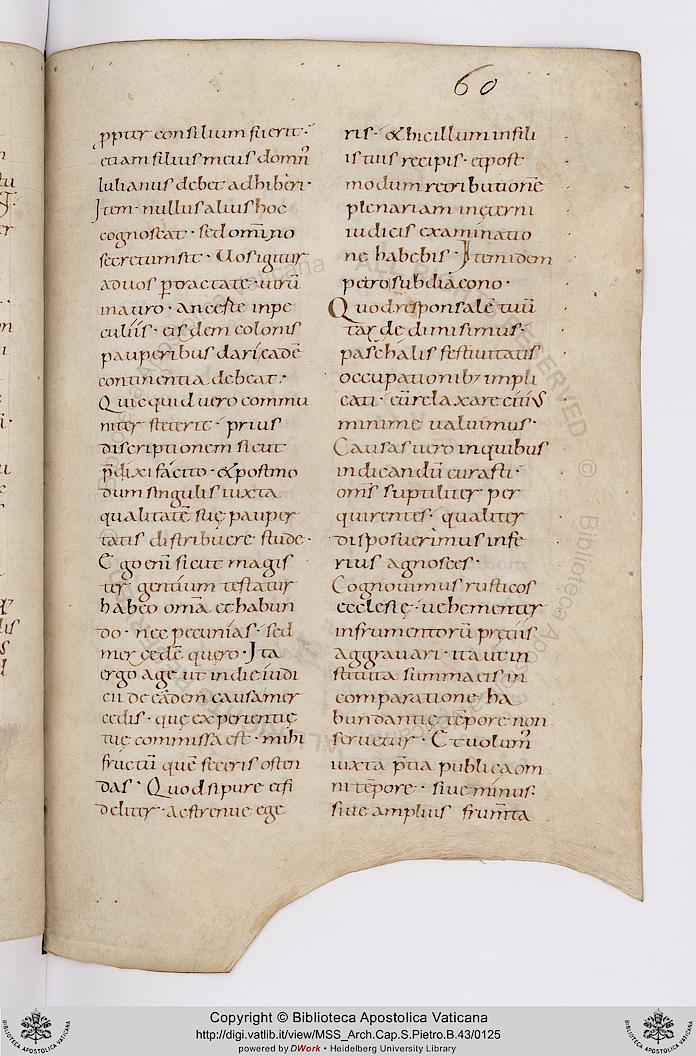 60
p̄pter consilium fuerit·
etiam filius meus domn̄
Iulianus debet adhiberi·
Item· nullus alius hoc
cognoscat· sed omnino
secretum sit· Uos igitur
ad uos ꝑtractate· utrū
in auro· an ceste in pe
culiis· eisdem colonis
pauperibus dari ęadē
continentia debeat·
Quicquid uero commu
niter steterit· prius
discriptionem sicut
p̄dixi facito· & postmo
dum singulis iuxta
qualitatē suę pauper
tatis distribuere stude·
Ego enī sicut magis
ter gentium testatur
habeo om̄a et habun
do· nec pecunias· sed
mercedē quero· Ita
ergo age ut in die iudi
cii de eādem causa mer
cedis· quę experientię
tuę commissa est· mihi
fructū quē feceris osten
das· Quod si pure et fi
deliter· ac strenue ege
ris· & hic illum in fili
is tuis recipis· et post
modum retributionē
plenariam in ęterni
iudicis examinatio
ne habebis· Item idem
petro subdiacono·
Quod responsalē tuū
tarde dimisimus·
paschalis festiuitatis
occupationib; impli
cati· eū relaxare citius
minime ualuimus·
Causas uero in quibus
indicandū curasti·
om̄s suptiliter per
quirentes· qualiter
disposuerimus infe
rius agnosces·
Cognouimus rusticos
ecclesię· uehementer
in frumentorū pretiis
aggrauari· ita ut in
stituta summa eis in
comparatione ha
bundantię tēpore non
seruetur· Et uolum̄
iuxta p̄tia publica om
ni tēpore· siue minus·
siue amplius frum̄ta
Copyright © Biblioteca Apostolica Vaticana
http://digi.vatlib.it/view/MSS_Arch.Cap.S.Pietro.B.43/0125
powered by DWork • Heidelberg University Library